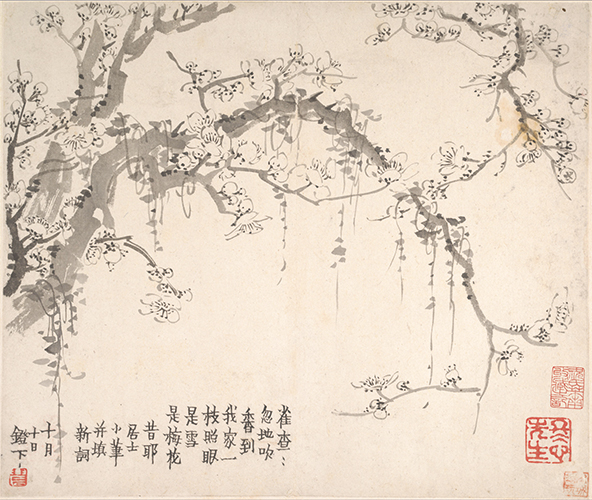 雀查〻
忽地吹
香到
我家一
枝照眼
是雪
是梅花
昔耶
居士
小筆
并填
新詞
十月
十日
鐙下
冬心
先生